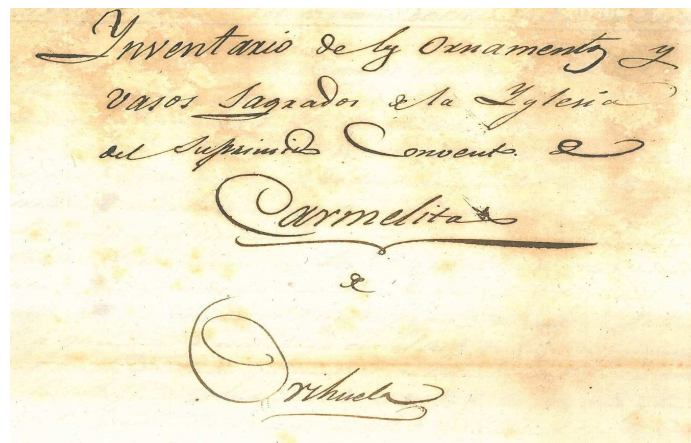 Ynventario de los Ornamentos y
vasos Sagrados de la Yglesia
del Suprimido Convento de
Carmelitas
de
Orihuela